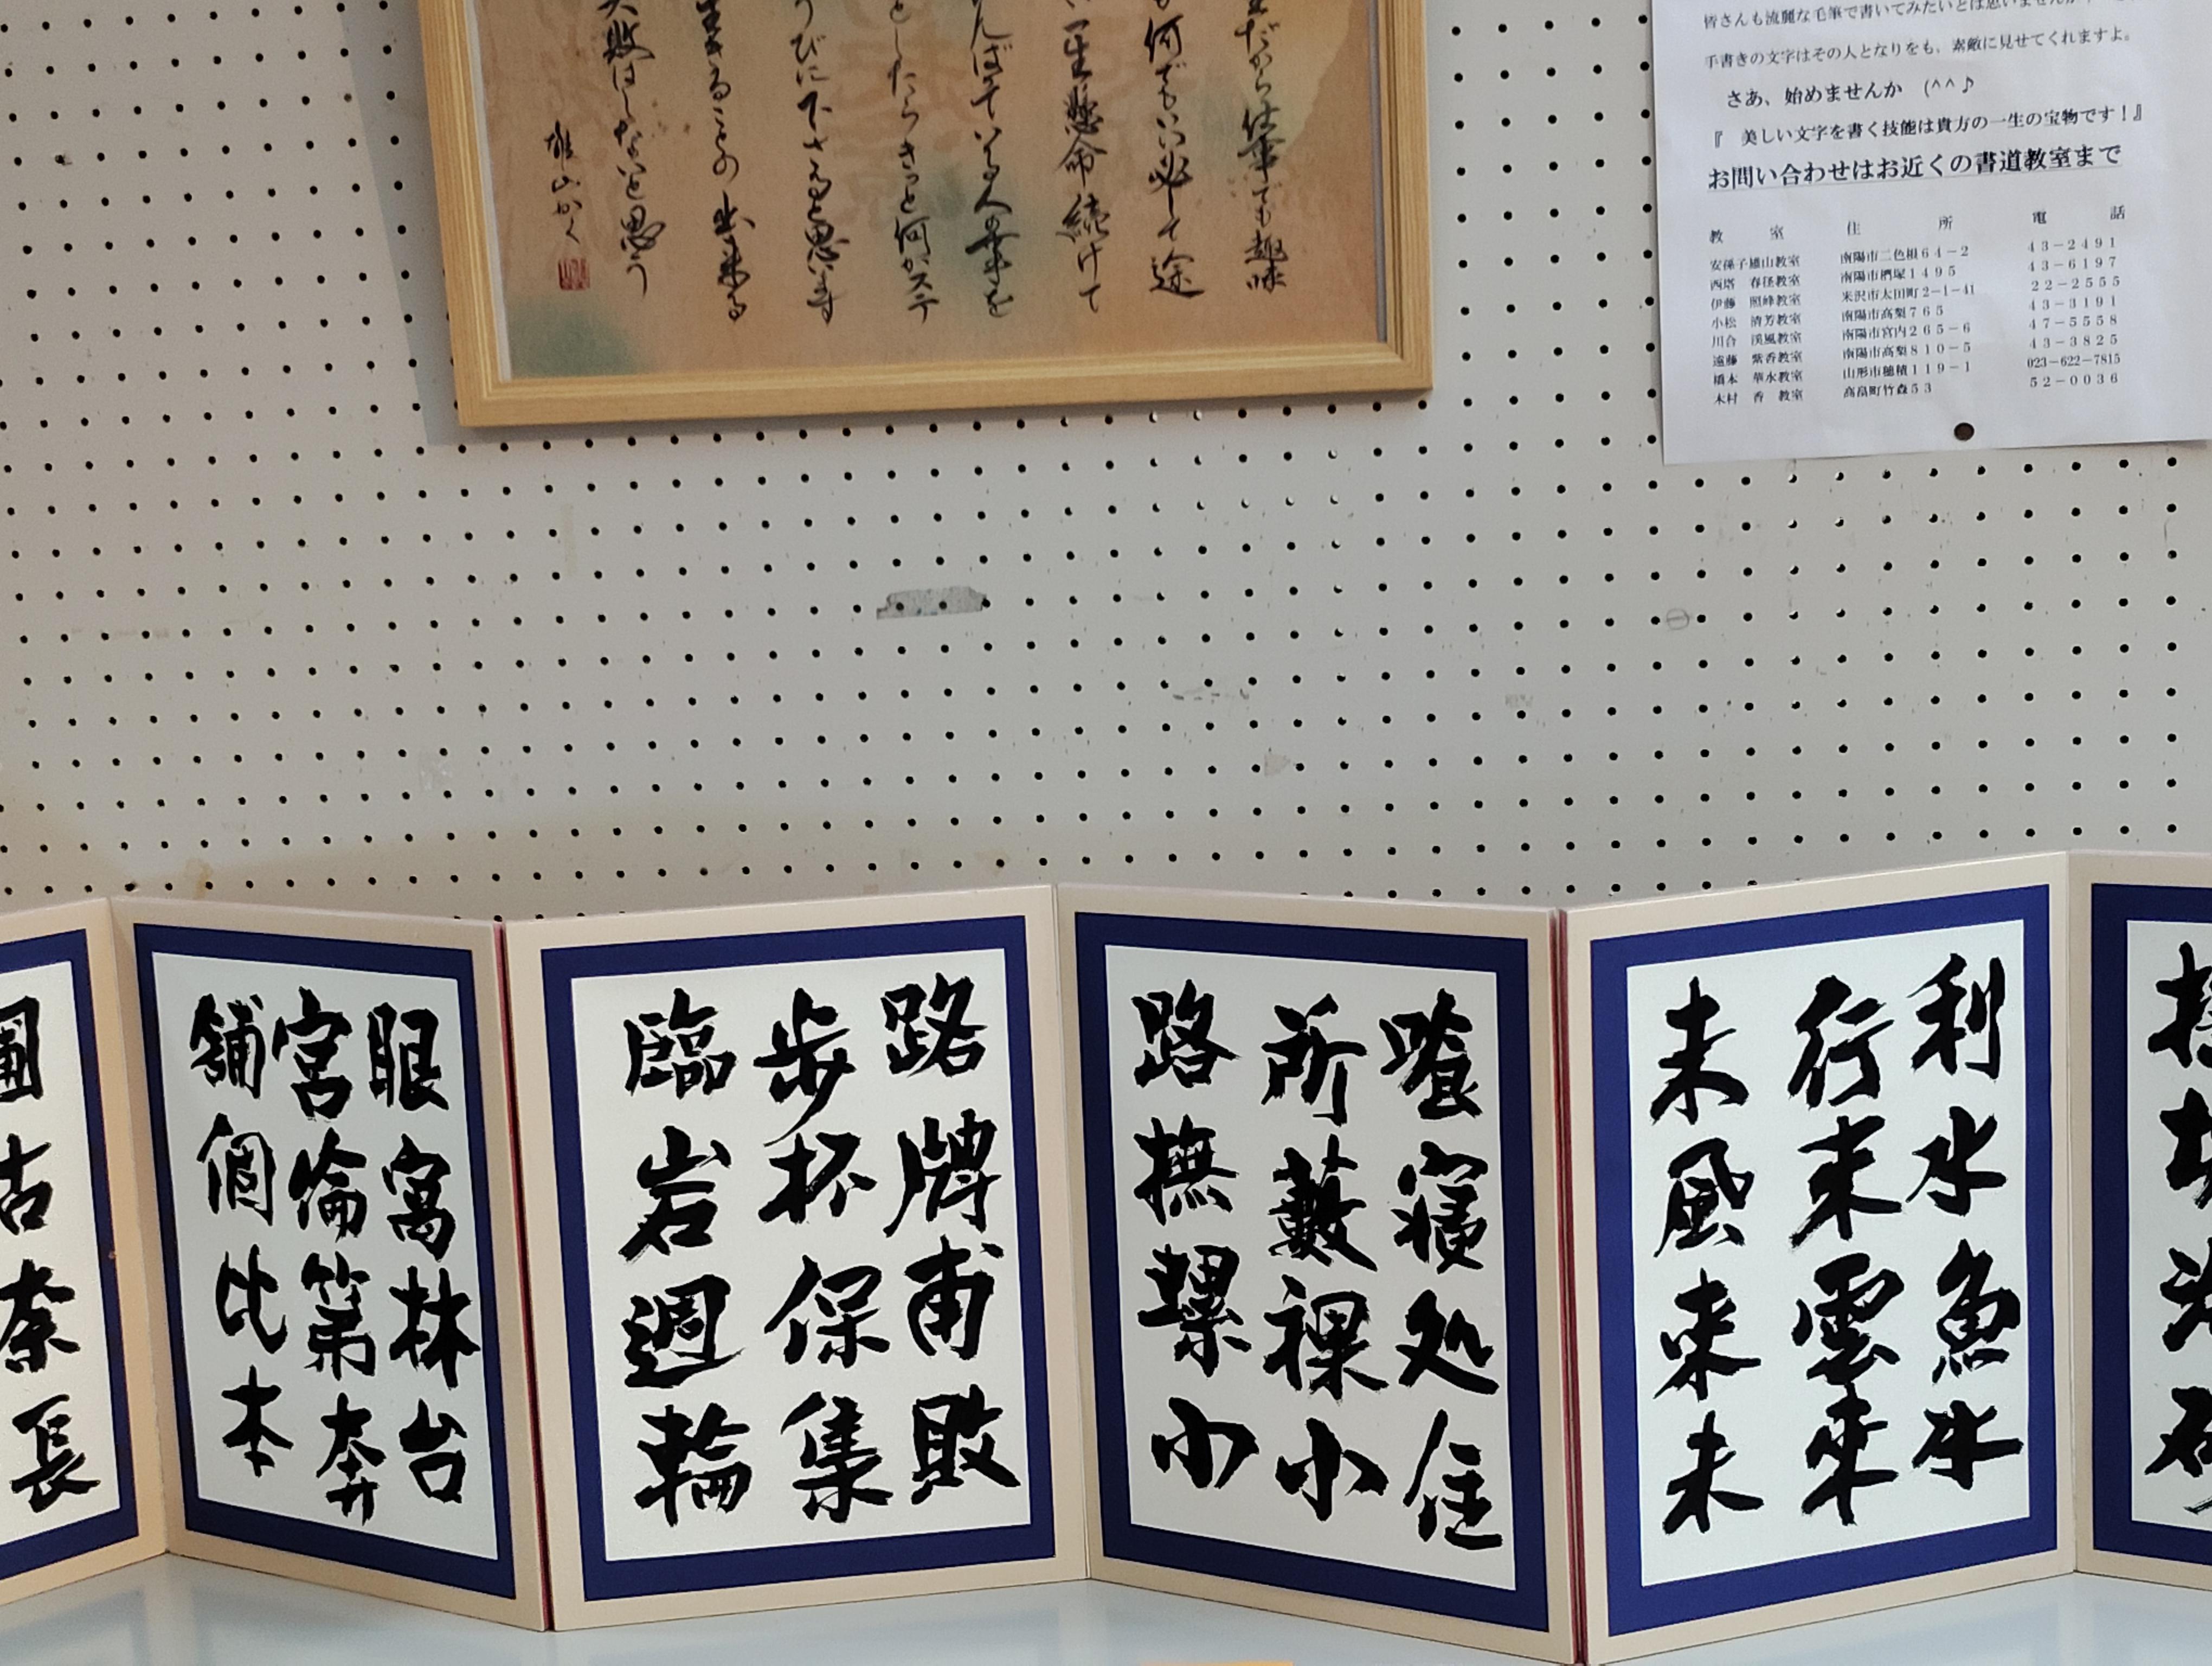 だから仕事でも趣味
何でもいい必して途
一生懸命続けて
んばている人の事を
としたらきっと何かステ
うびに下さると思います
生きることの出来る
敗はしないと思う
雄山かく
手書きの文字はその人となりをも、素敵に見せてくれますよ。
さあ、始めませんか (^^♪
『 美しい文字を書く技能は貴方の一生の宝物です！』
お問い合わせはお近くの書道教室まで
教室 住所 電話
安孫子雄山教室 南陽市二色根64-2 43-2491
西塔 春径教室 南陽市椚塚1495 43-6197
伊藤 照峰教室 米沢市太田町2-1-41 22-2555
小松 清芳教室 南陽市高梨765 43-3191
川合 渓風教室 南陽市宮内265-6 47-5558
遠藤 紫香教室 南陽市高梨810-5 43-3825
橋本 華水教室 山形市穂積119-1 023-622-7815
木村 香 教室 高畠町竹森53 52-0036
利水魚水
行来雲来
未風来未
喰寝処住
所藪裸小
路撫螺小
路牌甫敗
歩杯保集
臨岩週輪
眼窩林台
宮倫第奔
舗個比本
古奈長